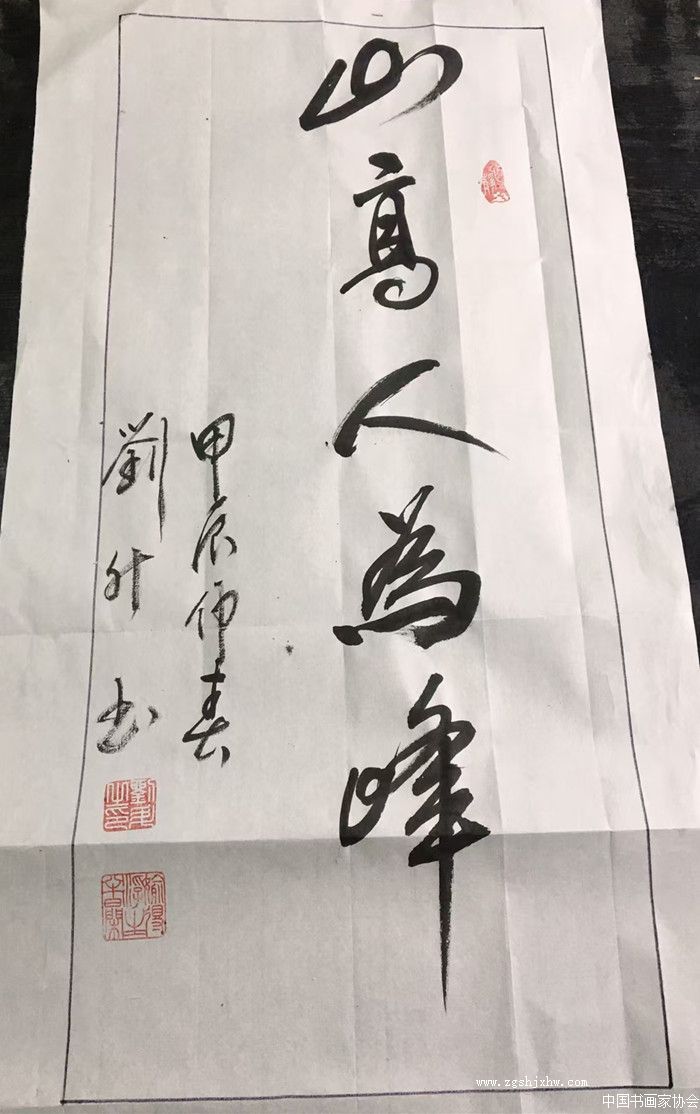 山高人為峰
甲辰仲春
劉升书
www.zgshjxhw.com
中国书画家协会